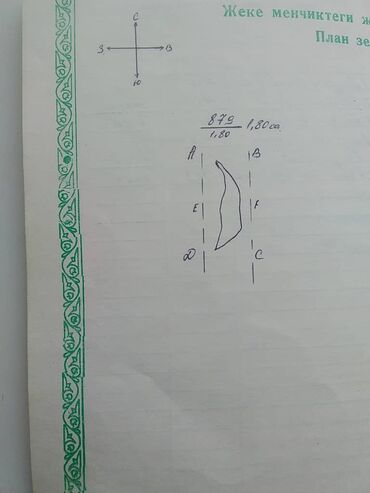 Жеке менчиктеги ж
План зе
С
З В
Ю
879
1,80 1,80 га
А В
Е F
Д С